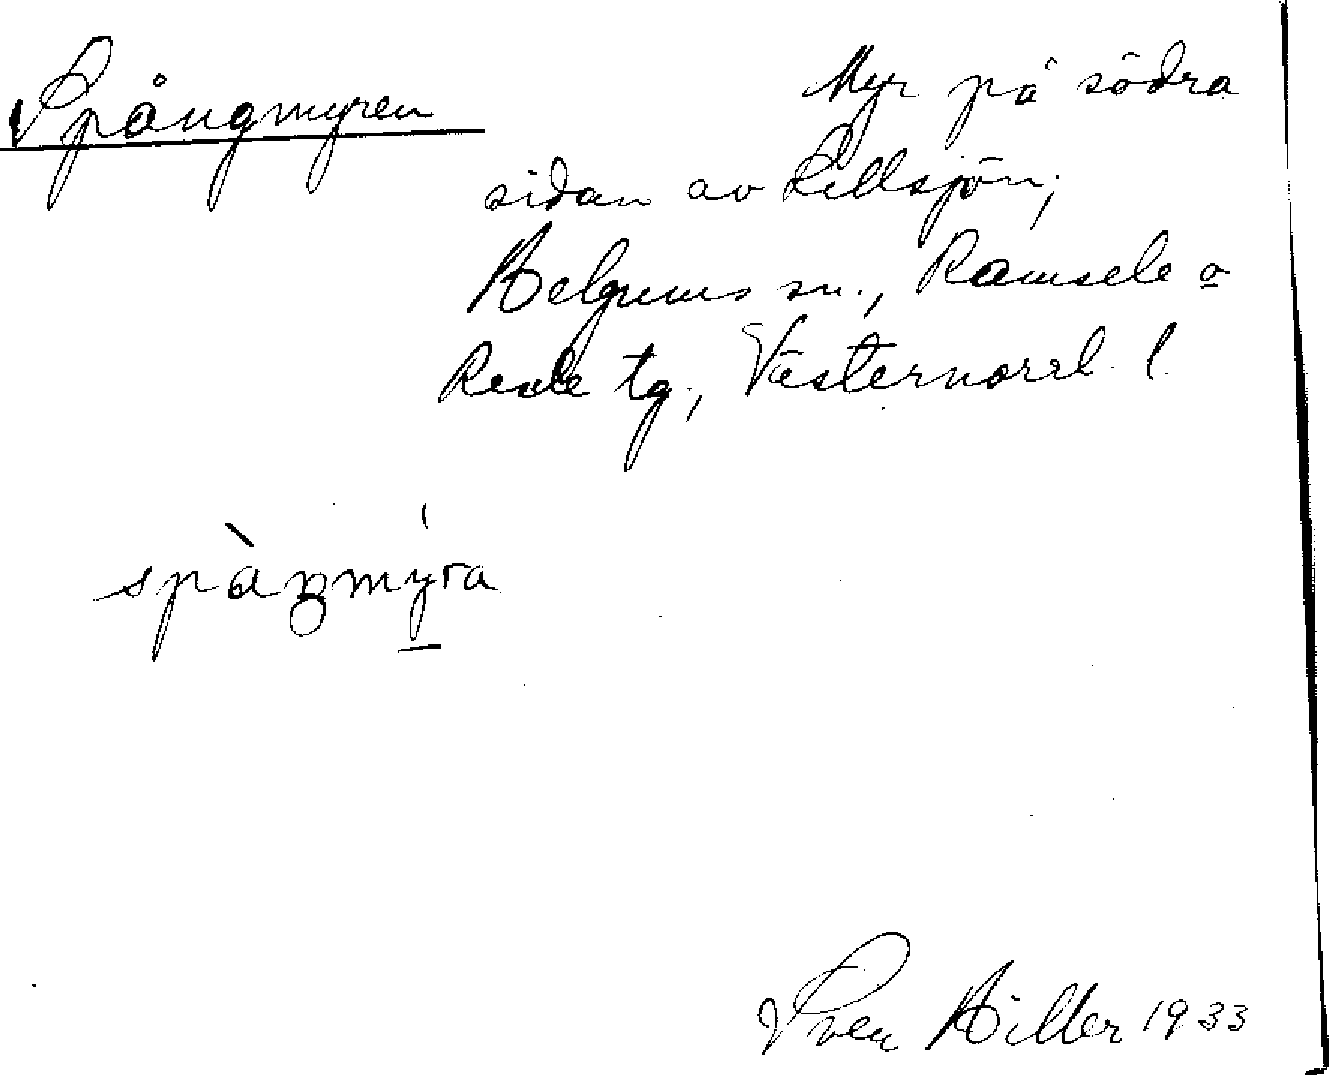 Spångmyren
Myr på södra
sidan av Lillsjön,
Helgums sn., Ramsele o
Resele tg., Västernorrl. l.
spàŋmýra
Sven Hiller 1933